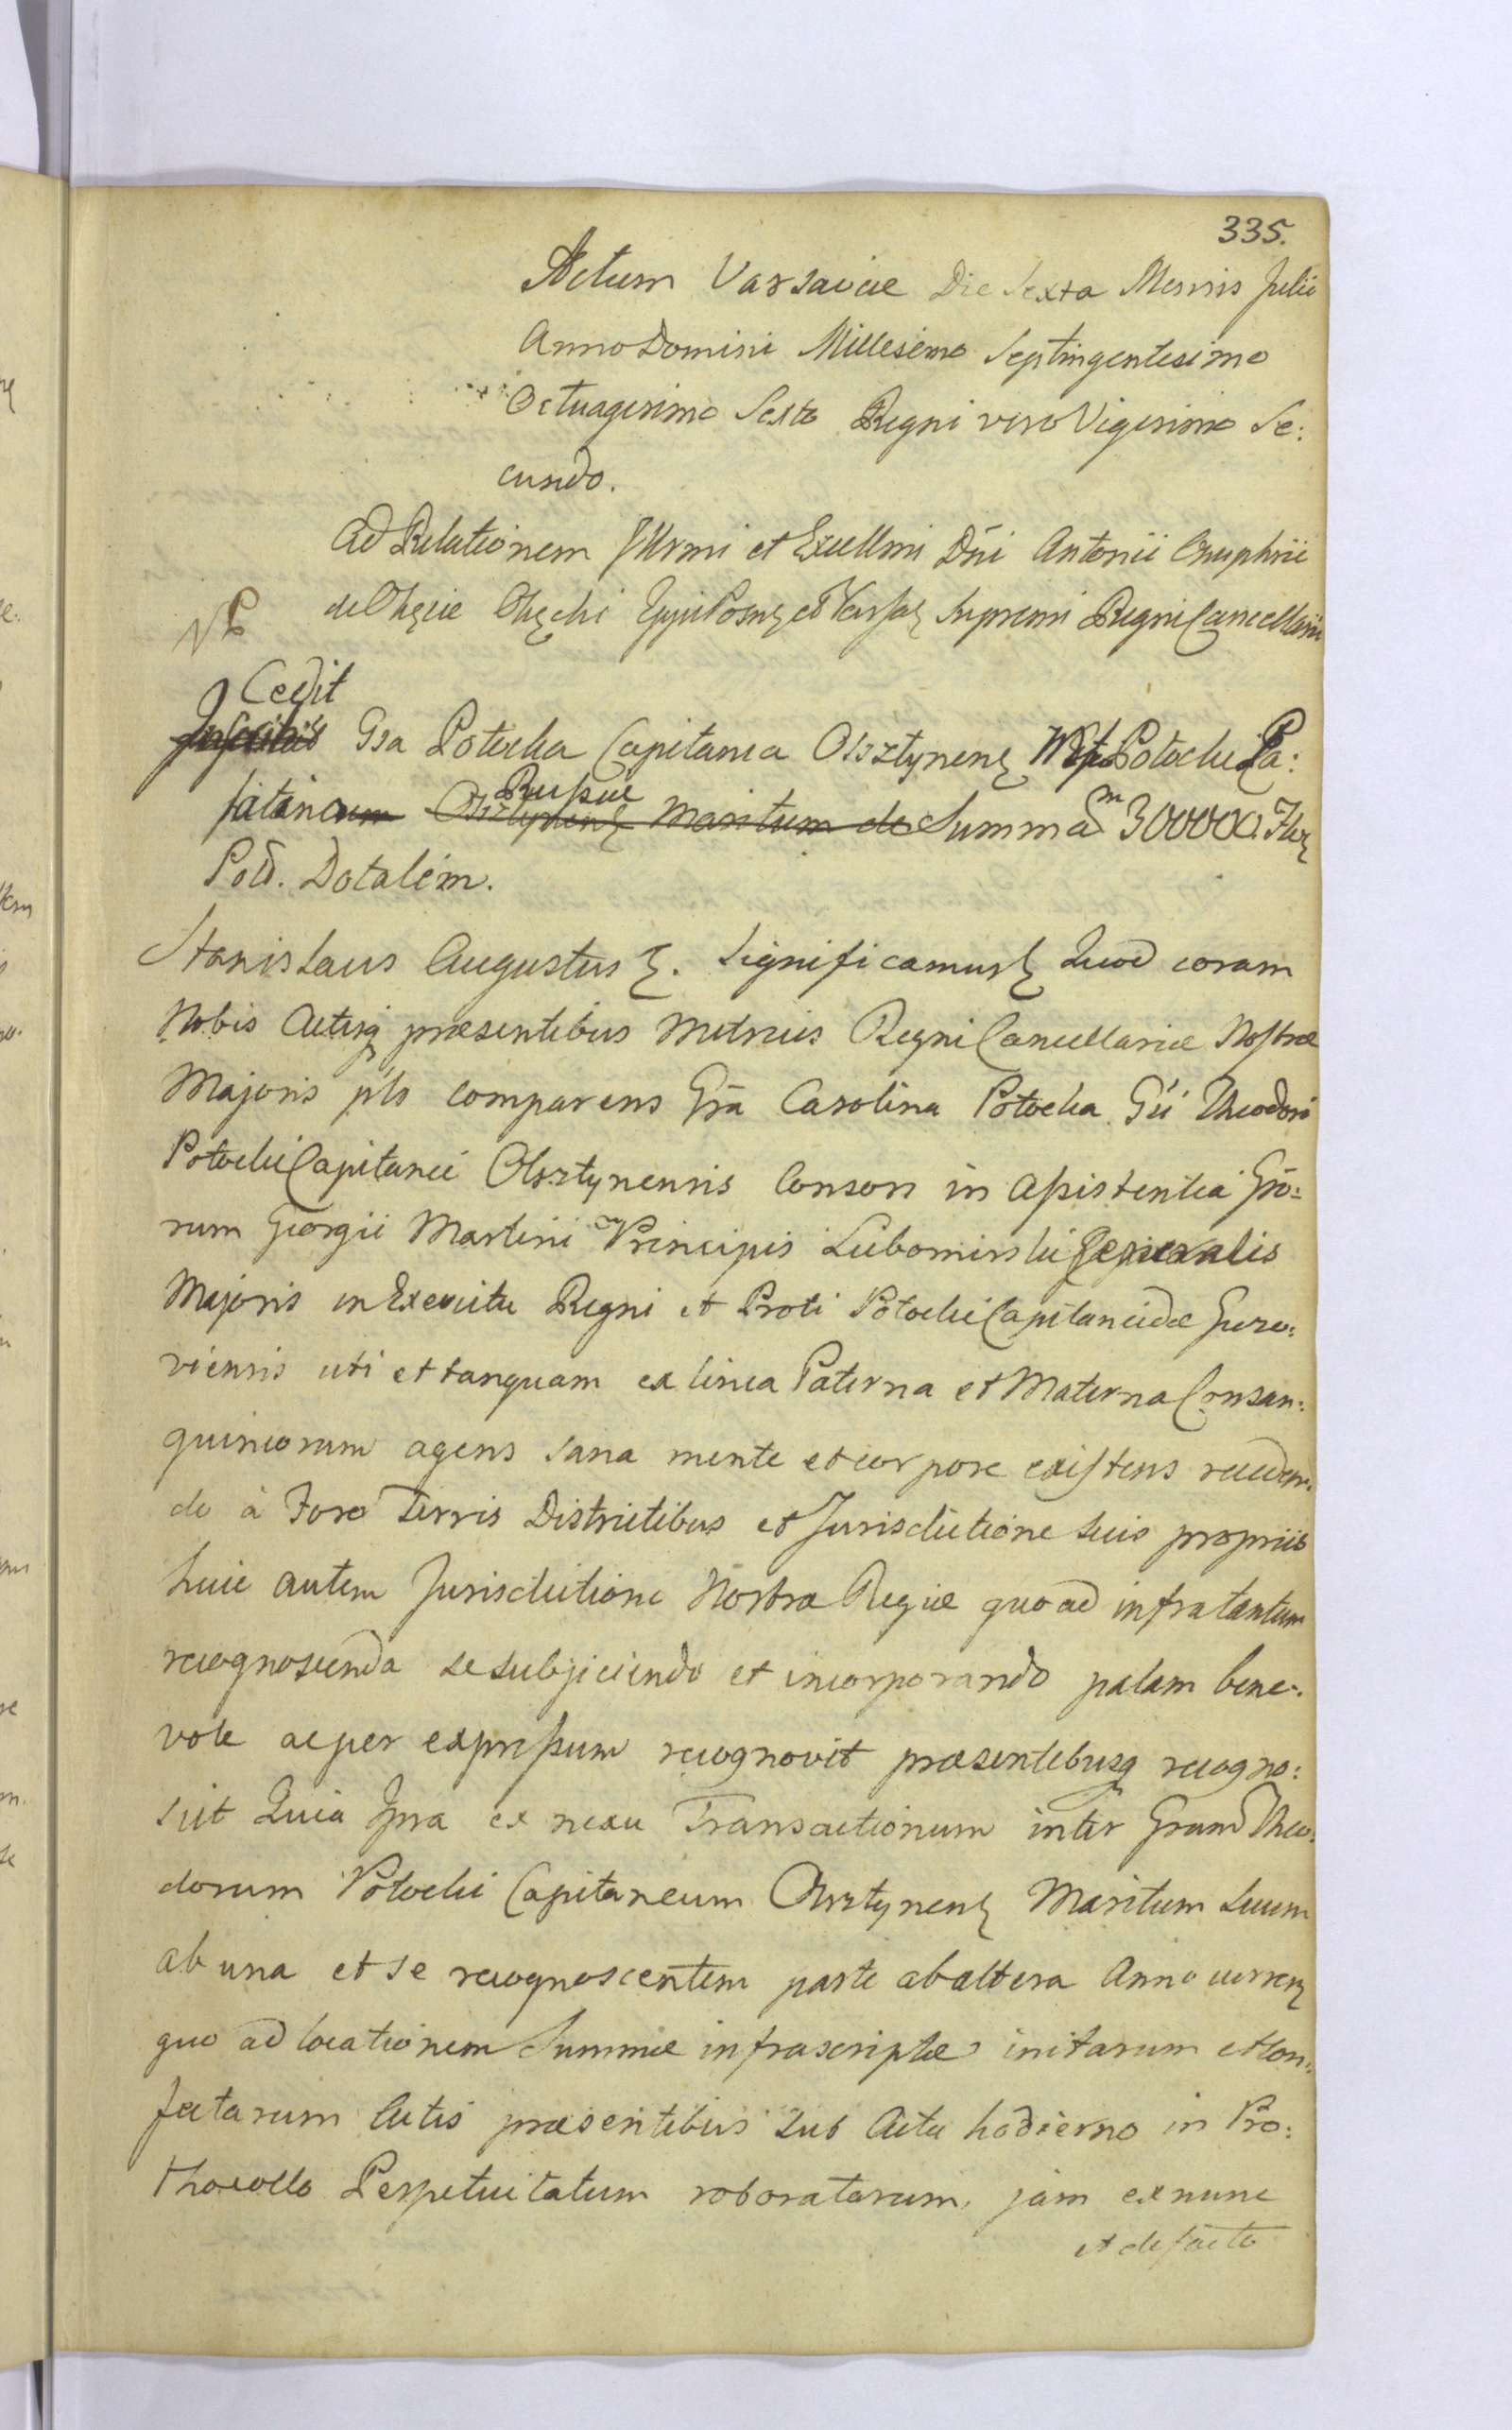 335.
Actum Varsaviae Die Sexta Mensis Julii
Anno Domini Millesimo Septingentesimo
Octuagesimo Sexto Regni vero Vigesimo Se:
cundo.
Ad Relationem Illrmi et Excellmi Dni Antonii Onuphrii
de Okęcie Okęcki Eppi Posnȝ et Varsaȝ Supremi Regni Cancellarii
Cedit
Inscribit Gsa Potocka Capitanea Olsztynenȝ Potocki Pa:
Russiae
latinum Olsztynenȝ Maritum de Summam 300000. Flȝ
Pol. Dotalem.
Stanislaus Augustus ȝ. Significamusȝ Quod coram
Nobis Actisq praesentibus Metrices Regni Cancellariae Nostrae
Majoris pls comparens Gsa Carolina Potocka Gsi Theodori
Potocki Capitanei Olsztynensis Consors in Assistentia Gso:
rum Georgii Martini Principis Lubomirski Generalis
Majoris in Exercitu Regni et Proti Potocki Capitaneidae Guzo:
viensis uti et tanquam ex linea Paterna et Materna Consan:
guineorum agens sana mente et corpore existens receden:
do à Foro Terris Districtibus et Jurisdictione suis propriis
huic autem Jurisdictioni Nostrae Regiae quo ad infra tantum
recognoscenda se subjiciendo et incorporando palam bene:
vole ac per expressum recognovit praesentibusq recogno:
scit Quia Ipsa ex nexu Transactionum inter Gsum Theo:
dorum Potocki Capitaneum Olsztynenȝ Maritum Suum
ab una et se recognoscentem parte ab altera Anno currenȝ
quo ad locationem Summae infrascriptae initarum et Con:
fectarum Actis praesentibus sub Actu hodierno in Pro:
thocollo Perpetuitatum roboratarum, jam ex nunc
et de facto